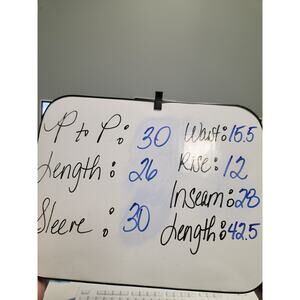 P to P: 30
Length: 26
Sleeve: 30
Waist: 15.5
Rise: 12
Inseam: 28
Length: 42.5